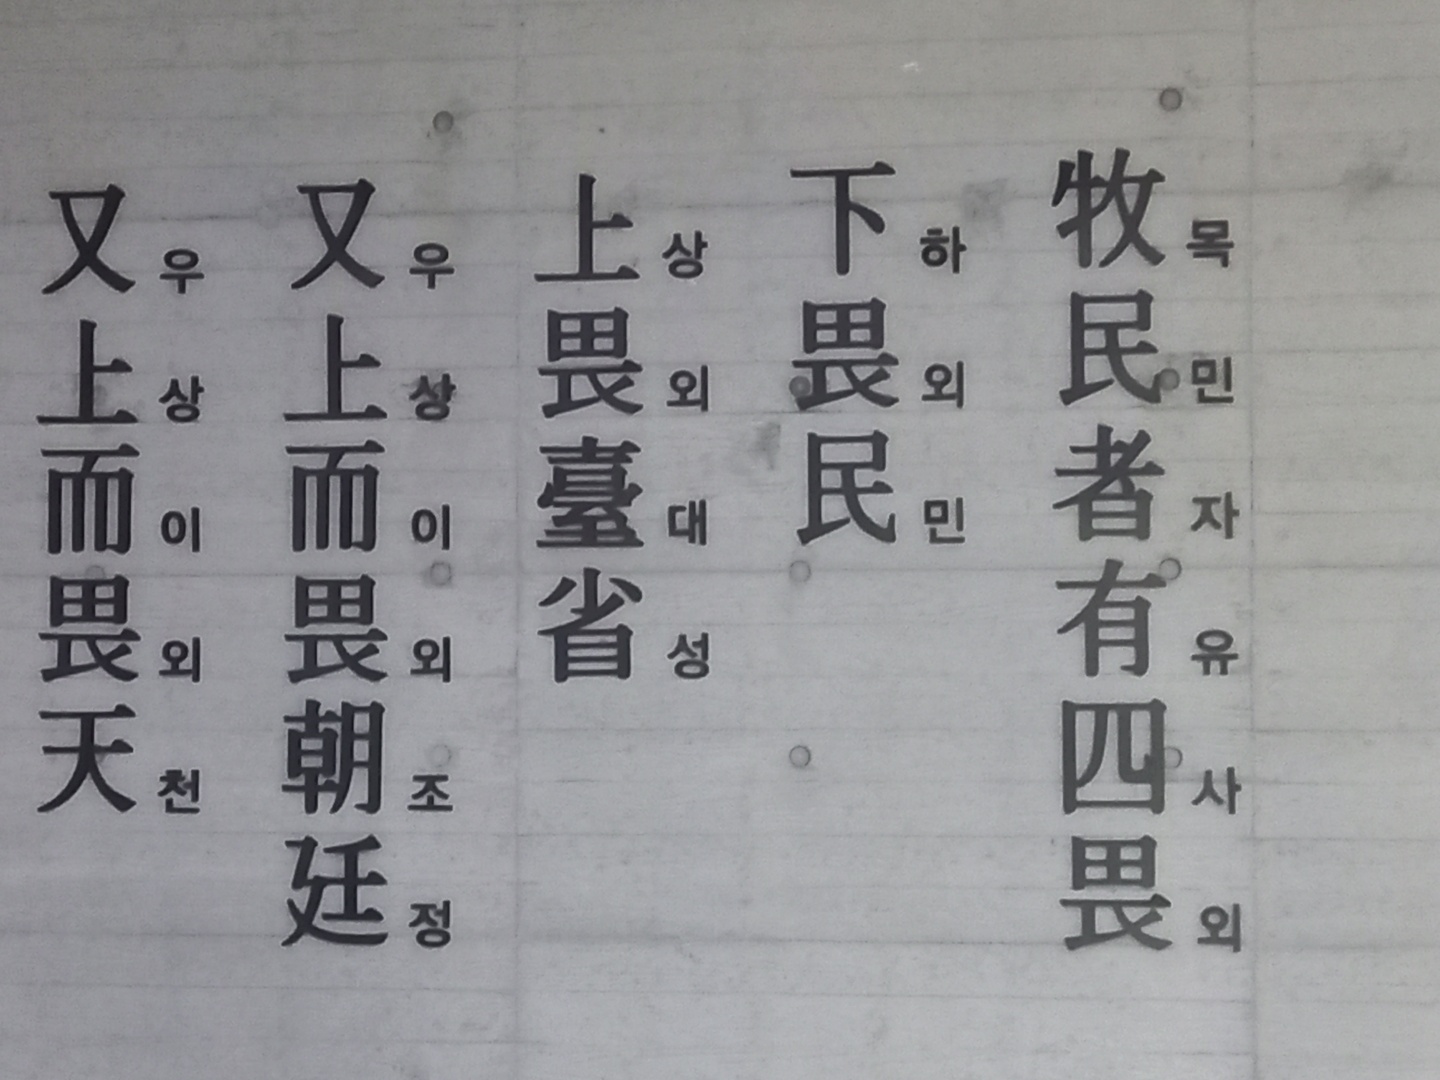 牧民者有四畏
목민자유사외
下畏民
하외민
上畏臺省
상외대성
又上而畏朝廷
우상이외조정
又上而畏天
우상이외천